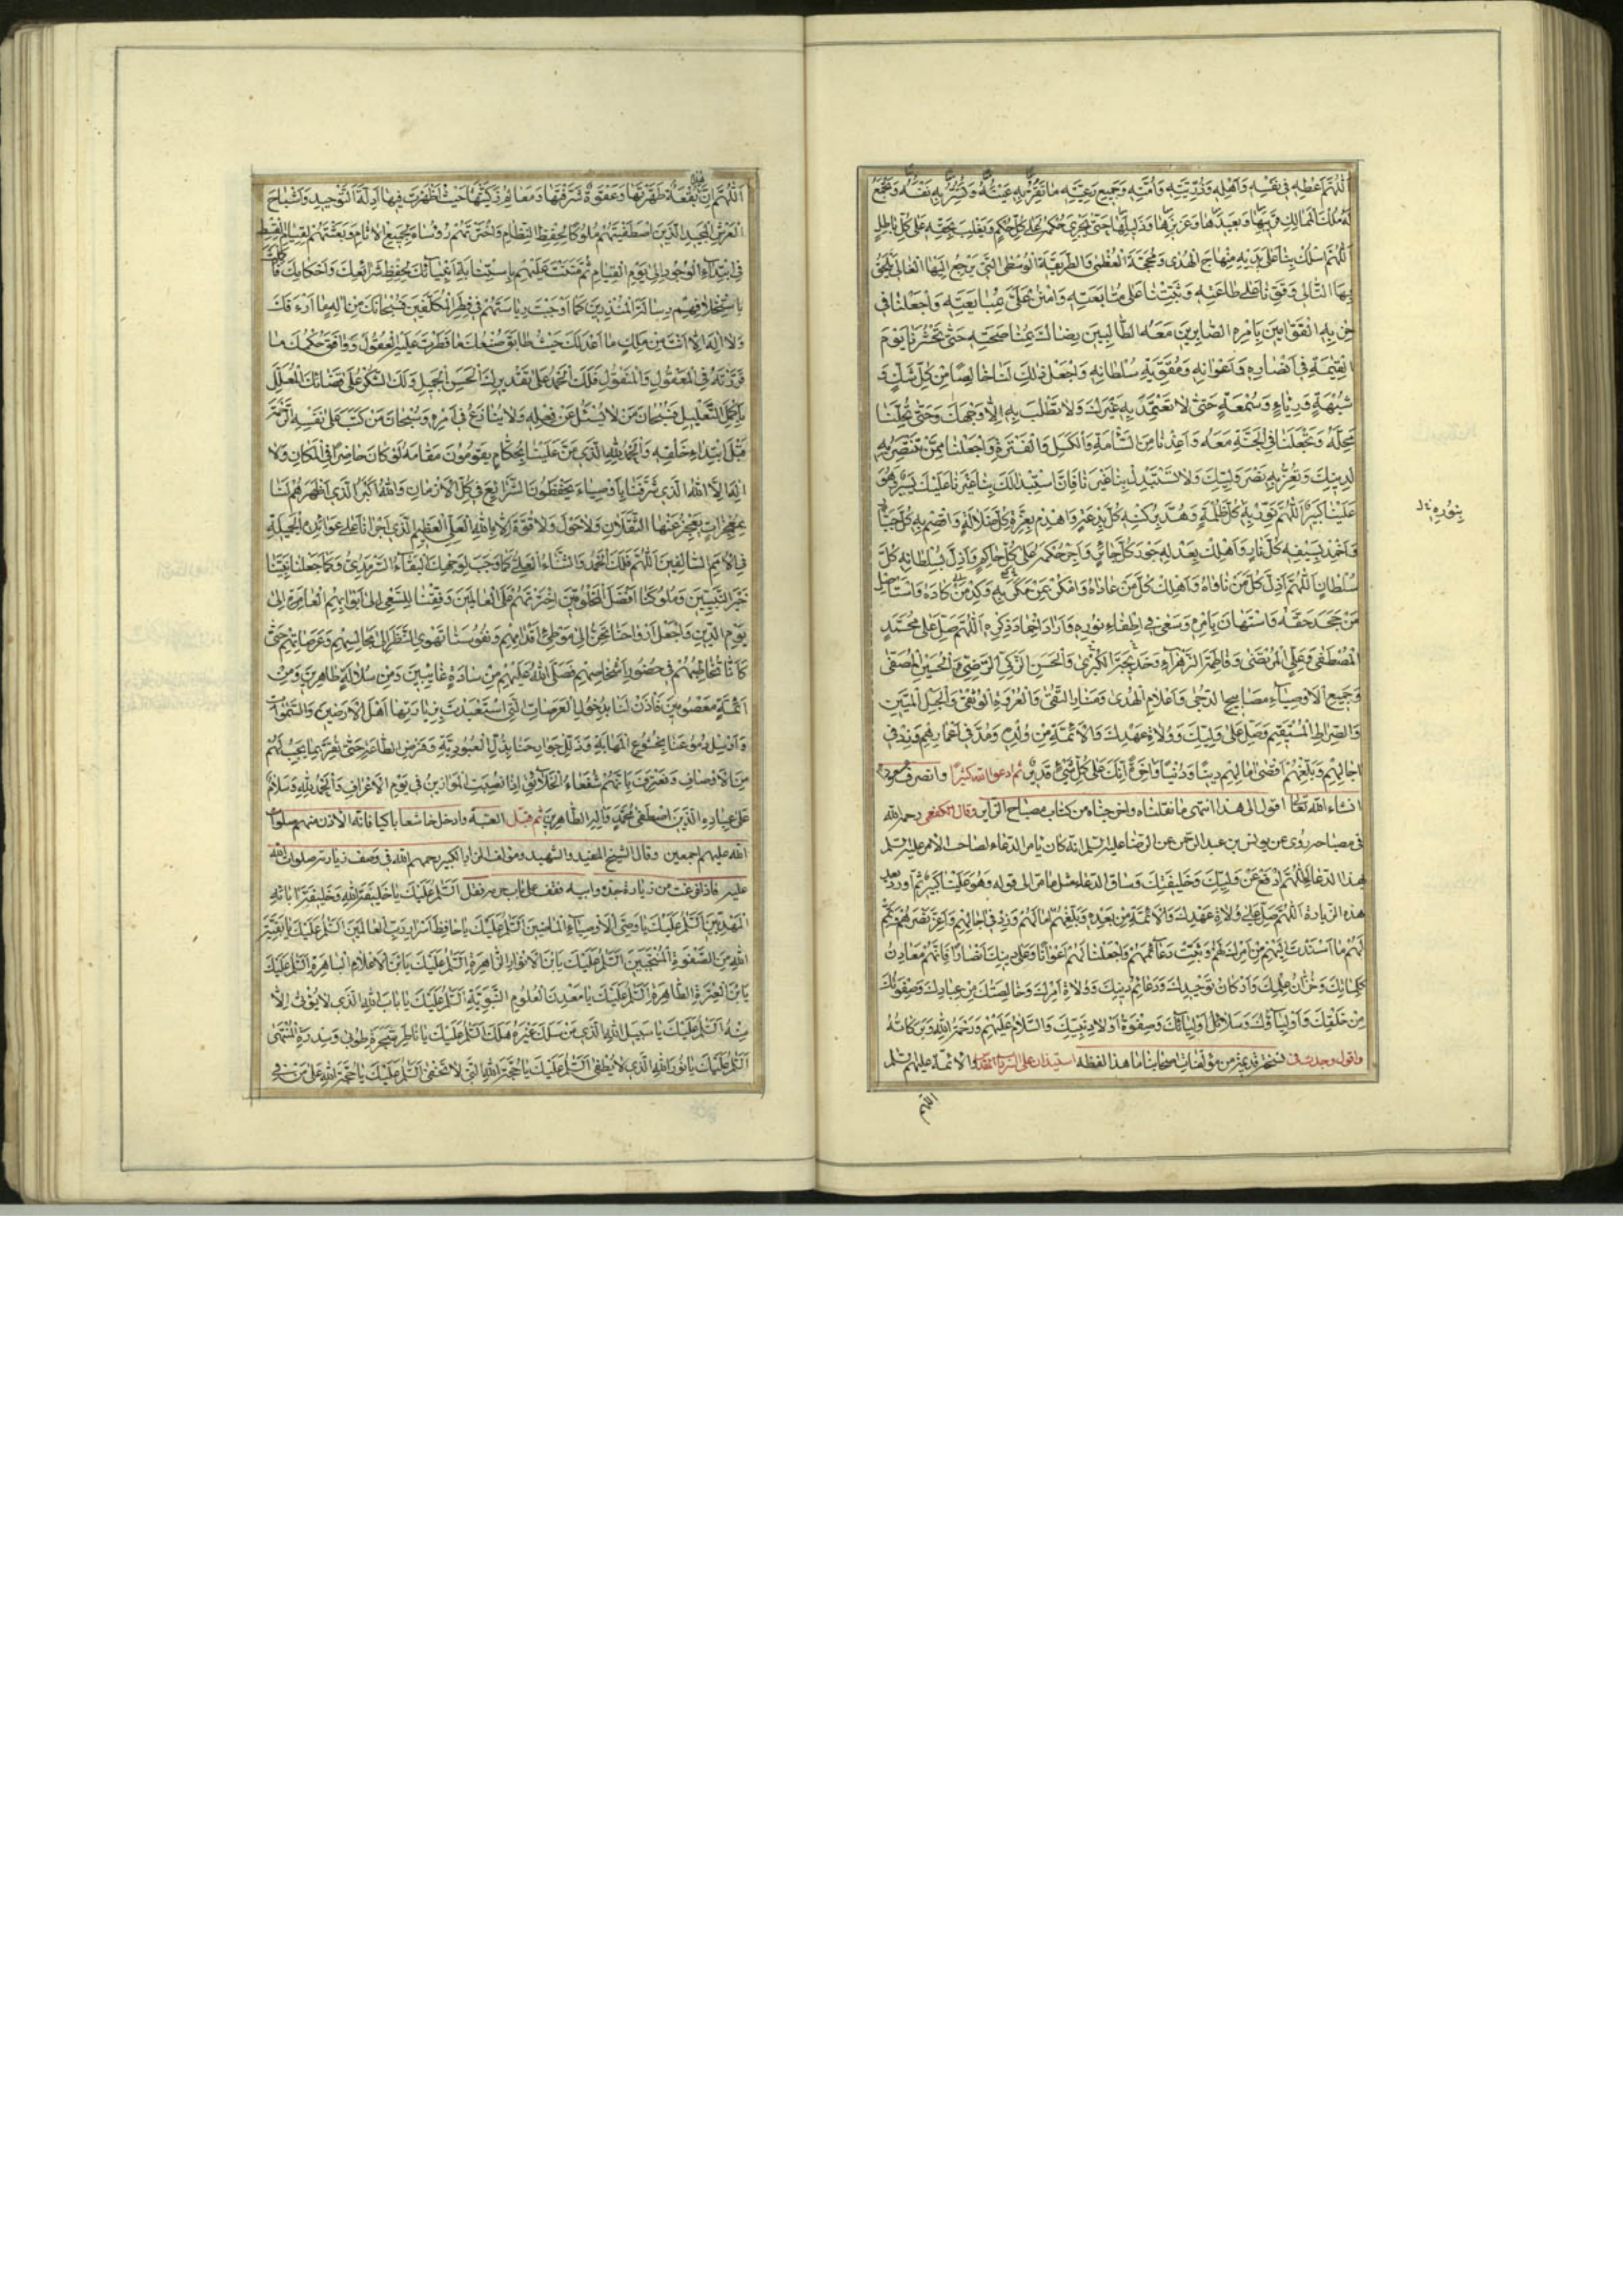 اَللّٰهُمَّ اَعْطِهِ فِي نَفْسِهِ وَاَهْلِهِ وَذُرِّيَّتِهِ وَاُمَّتِهِ وَجَمِيعِ رَعِيَّتِهِ مَا تُقِرُّ بِهِ عَيْنَهُ وَتَسُرُّ بِهِ نَفْسَهُ وَتَجْمَعُ
لَهُ مُلْكَ الْمَمَالِكِ قَرِيبِهَا وَبَعِيدِهَا وَعَزِيزِهَا وَذَلِيلِهَا حَتّٰى يَجْرِيَ حُكْمُهُ عَلٰى كُلِّ حُكْمٍ وَيَغْلِبَ بِحَقِّهِ عَلٰى كُلِّ بَاطِلٍ
اَللّٰهُمَّ اسْلُكْ بِنَا عَلٰى يَدَيْهِ مِنْهَاجَ الْهُدٰى وَالْمَحَجَّةَ الْعُظْمٰى وَالطَّرِيقَةَ الْوُسْطٰى الَّتِي يَرْجِعُ اِلَيْهَا الْغَالِي وَيَلْحَقُ
بِهَا التَّالِي وَقَوِّنَا عَلٰى طَاعَتِهِ وَثَبِّتْنَا عَلٰى مُتَابَعَتِهِ وَامْنُنْ عَلَيْنَا بِمُبَايَعَتِهِ وَاجْعَلْنَا فِي
حِزْبِهِ الْقَوَّامِينَ بِاَمْرِهِ الصَّابِرِينَ مَعَهُ الطَّالِبِينَ رِضَاكَ بِمُنَاصَحَتِهِ حَتّٰى تَحْشُرَنَا يَوْمَ
الْقِيٰمَةِ فِي اَنْصَارِهِ وَاَعْوَانِهِ وَمُقَوِّيَةِ سُلْطَانِهِ وَاجْعَلْ ذٰلِكَ لَنَا خَالِصًا مِنْ كُلِّ شَكٍّ وَ
شُبْهَةٍ وَرِيَاءٍ وَسُمْعَةٍ حَتّٰى لَا نَعْتَمِدَ بِهِ غَيْرَكَ وَلَا نَطْلُبَ بِهِ اِلَّا وَجْهَكَ وَحَتّٰى تُحِلَّنَا
مَحَلَّهُ وَتَجْعَلَنَا فِي الْجَنَّةِ مَعَهُ وَاَعِذْنَا مِنَ السَّأمَةِ وَالْكَسَلِ وَالْفَتْرَةِ وَاجْعَلْنَا مِمَّنْ تَنْتَصِرُ بِهِ
لِدِينِكَ وَتُعِزُّ بِهِ نَصْرَ وَلِيِّكَ وَلَا تَسْتَبْدِلْ بِنَا غَيْرَنَا فَاِنَّ اسْتِبْدَالَكَ بِنَا غَيْرَنَا عَلَيْكَ يَسِيرٌ وَهُوَ
عَلَيْنَا كَبِيرٌ اَللّٰهُمَّ نَوِّرْ بِهِ كُلَّ ظُلْمَةٍ وَهُدَّ بِرُكْنِهِ كُلَّ بِدْعَةٍ وَاهْدِمْ بِعِزَّةِ كُلَّ ضَلَالَةٍ وَاقْصِمْ بِهِ كُلَّ جَبَّارٍ
بِنُورِهِ خ ل
وَاَخْمِدْ بِسَيْفِهِ كُلَّ نَارٍ وَاَهْلِكْ بِعَدْلِهِ جَوْرَ كُلِّ جَائِرٍ وَاَجْرِ حُكْمَهُ عَلٰى كُلِّ حَاكِمٍ وَاَذِلَّ بِسُلْطَانِهِ كُلَّ
سُلْطَانٍ اَللّٰهُمَّ اَذِلَّ كُلَّ مَنْ نَاوَاهُ وَاَهْلِكْ كُلَّ مَنْ عَادَاهُ وَامْكُرْ بِمَنْ مَكَرَ بِهِ وَكِدْ مَنْ كَادَهُ وَاسْتَأْصِلْ
مَنْ جَحَدَ حَقَّهُ وَاسْتَهَانَ بِاَمْرِهِ وَسَعٰى فِي اِطْفَاءِ نُورِهِ وَاَرَادَ اِخْمَادَ ذِكْرِهِ اَللّٰهُمَّ صَلِّ عَلٰى مُحَمَّدٍ
الْمُصْطَفٰى وَعَلِيٍّ الْمُرْتَضٰى وَفَاطِمَةَ الزَّهْرَاءِ وَخَدِيجَةَ الْكُبْرٰى وَالْحَسَنِ الزَّكِيِّ الرَّضِيِّ وَالْحُسَيْنِ الْمُصَفّٰى
وَجَمِيعِ الْاَوْصِيَاءِ مَصَابِيحِ الدُّجٰى وَاَعْلَامِ الْهُدٰى وَمَنَارِ التُّقٰى وَالْعُرْوَةِ الْوُثْقٰى وَالْحَبْلِ الْمَتِينِ
وَالصِّرَاطِ الْمُسْتَقِيمِ وَصَلِّ عَلٰى وَلِيِّكَ وَوُلَاةِ عَهْدِكَ وَالْاَئِمَّةِ مِنْ وُلْدِهِ وَمُدَّ فِي اَعْمَارِهِمْ وَزِدْ فِي
اٰجَالِهِمْ وَبَلِّغْهُمْ اَقْصٰى اٰمَالِهِمْ دِينًا وَدُنْيَا وَاٰخِرَةً اِنَّكَ عَلٰى كُلِّ شَيْءٍ قَدِيرٌ ثم ادعو اللّٰه كثيرا وانصرف مسعودا
انشاء اللّٰه تعالى اقول الى هذا انتهى ما نقلناه واخرجناه من كتاب مصباح الزائر وقال الكفعمي رحمه اللّٰه
في مصباحه روى عن يونس بن عبد الرحمن عن الرضا عليه السلم انه كان يامر الدعاء لصاحب الامر عليه السلم
بهذا الدعاء اَللّٰهُمَّ ادْفَعْ عَنْ وَلِيِّكَ وَخَلِيفَتِكَ وساق الدعاء مثل ما مر الى قوله وَهُوَ عَلَيْنَا كَبِيرٌ ثم اورد بعد
هذه الزيادة اَللّٰهُمَّ صَلِّ عَلٰى وُلَاةِ عَهْدِكَ وَالْاَئِمَّةِ مِنْ بَعْدِهِ وَبَلِّغْهُمْ اٰمَالَهُمْ وَزِدْ فِي اٰجَالِهِمْ وَاَعِزَّ نَصْرَهُمْ وَتَمِّمْ
لَهُمْ مَا اَسْنَدْتَ اِلَيْهِمْ مِنْ اَمْرِكَ لَهُمْ وَثَبِّتْ دَعَائِمَهُمْ وَاجْعَلْنَا لَهُمْ اَعْوَانًا وَعَلٰى دِينِكَ اَنْصَارًا فَاِنَّهُمْ مَعَادِنُ
كَلِمَاتِكَ وَخُزَّانُ عِلْمِكَ وَاَرْكَانُ تَوْحِيدِكَ وَدَعَائِمُ دِينِكَ وَوُلَاةُ اَمْرِكَ وَخَالِصَتُكَ مِنْ عِبَادِكَ وَصَفْوَتُكَ
مِنْ خَلْقِكَ وَاَوْلِيَاؤُكَ وَسَلَائِلُ اَوْلِيَائِكَ وَصَفْوَةُ اَوْلَادِ نَبِيِّكَ وَالسَّلَامُ عَلَيْهِمْ وَرَحْمَةُ اللّٰهِ وَبَرَكَاتُهُ
واقول وجدت في نسخة قديمة من مؤلفات اصحابنا ما هذا لفظه استيذان على السرداب المقدس والائمة عليهم السلم
اللّٰهم
اَللّٰهُمَّ اِنَّ هٰذِهِ بُقْعَةٌ طَهَّرْتَهَا وَعَقْوَةٌ شَرَّفْتَهَا وَمَعَالِمُ زَكَّيْتَهَا حَيْثُ اَظْهَرْتَ فِيهَا اَدِلَّةَ التَّوْحِيدِ وَاَشْبَاحَ
الْعَرْشِ الْمَجِيدِ الَّذِينَ اصْطَفَيْتَهُمْ مُلُوكًا لِحِفْظِ النِّظَامِ وَاخْتَرْتَهُمْ رُؤَسَاءَ لِجَمِيعِ الْاَنَامِ وَبَعَثْتَهُمْ لِقِيَامِ الْقِسْطِ
فِي ابْتِدَاءِ الْوُجُودِ اِلٰى يَوْمِ الْقِيَامِ ثُمَّ مَنَنْتَ عَلَيْهِمْ بِاسْتِنَابَةِ اَنْبِيَائِكَ لِحِفْظِ شَرَائِعِكَ وَاَحْكَامِكَ فَاَكْمَلْتَ
بِاسْتِخْلَافِهِمْ رِسَالَةَ الْمُنْذِرِينَ كَمَا اَوْجَبْتَ رِيَاسَتَهُمْ فِي فِطَرِ الْمُكَلَّفِينَ فَسُبْحَانَكَ مِنْ اِلٰهٍ مَا اَرْءَفَكَ
وَلَا اِلٰهَ اِلَّا اَنْتَ مِنْ مَلِكٍ مَا اَعْدَلَكَ حَيْثُ طَابَقَ صُنْعُكَ مَا فَطَرْتَ عَلَيْهِ الْعُقُولَ وَوَافَقَ حُكْمُكَ مَا
قَرَّرْتَهُ فِي الْمَعْقُولِ وَالْمَنْقُولِ فَلَكَ الْحَمْدُ عَلٰى تَقْدِيرِكَ الْحَسَنِ الْجَمِيلِ وَلَكَ الشُّكْرُ عَلٰى قَضَائِكَ الْمُعَلَّلِ
بِاَكْمَلِ التَّعْلِيلِ فَسُبْحَانَ مَنْ لَا يُسْئَلُ عَنْ فِعْلِهِ وَلَا يُنَازَعُ فِي اَمْرِهِ وَسُبْحَانَ مَنْ كَتَبَ عَلٰى نَفْسِهِ الرَّحْمَةَ
قَبْلَ ابْتِدَاءِ خَلْقِهِ وَالْحَمْدُ لِلّٰهِ الَّذِي مَنَّ عَلَيْنَا بِحُكَّامٍ يَقُومُونَ مَقَامَهُ لَوْ كَانَ حَاضِرًا فِي الْمَكَانِ وَلَا
اِلٰهَ اِلَّا اللّٰهُ الَّذِي شَرَّفَنَا بِاَوْصِيَاءَ يَحْفَظُونَ الشَّرَائِعَ فِي كُلِّ الْاَزْمَانِ وَاللّٰهُ اَكْبَرُ الَّذِي اَظْهَرَهُمْ لَنَا
بِمُعْجِزَاتٍ يَعْجِزُ عَنْهَا الثَّقَلَانِ وَلَا حَوْلَ وَلَا قُوَّةَ اِلَّا بِاللّٰهِ الْعَلِيِّ الْعَظِيمِ الَّذِي اَجْرَانَا عَلٰى عَوَائِدِهِ الْجَمِيلَةِ
فِي الْاُمَمِ السَّالِفِينَ اَللّٰهُمَّ فَلَكَ الْحَمْدُ وَالثَّنَاءُ الْعَلِيُّ كَمَا وَجَبَ لِوَجْهِكَ الْبَقَاءُ السَّرْمَدِيُّ وَكَمَا جَعَلْتَ نَبِيَّنَا
خَيْرَ النَّبِيِّينَ وَمُلُوكَنَا اَفْضَلَ الْمَخْلُوقِينَ اخْتَرْتَهُمْ عَلَى الْعَالَمِينَ وَفِّقْنَا لِلسَّعْيِ اِلٰى اَبْوَابِهِمُ الْعَامِرَةِ اِلٰى
يَوْمِ الدِّينِ وَاجْعَلْ اَرْوَاحَنَا تَحِنُّ اِلٰى مَوْطِئِ اَقْدَامِهِمْ وَنُفُوسَنَا تَهْوِي النَّظَرَ اِلٰى مَجَالِسِهِمْ وَعَرَصَاتِهِمْ حَتّٰى
كَاَنَّنَا نُخَاطِبُهُمْ فِي حُضُورِ اَشْخَاصِهِمْ فَصَلَّى اللّٰهُ عَلَيْهِمْ مِنْ سَادَةٍ غَائِبِينَ وَمِنْ سُلَالَةٍ طَاهِرِينَ وَمِنْ
اَئِمَّةٍ مَعْصُومِينَ فَأْذَنْ لَنَا بِدُخُولِ الْعَرَصَاتِ الَّتِي اسْتَعْبَدْتَ بِزِيَارَتِهَا اَهْلَ الْاَرَضِينَ وَالسَّمٰوَاتِ
وَاَرْسِلْ دُمُوعَنَا بِخُشُوعِ الْمَهَابَةِ وَذَلِّلْ جَوَارِحَنَا بِذُلِّ الْعُبُودِيَّةِ وَفَرْضِ الطَّاعَةِ حَتّٰى نُقِرَّ بِمَا يَجِبُ لَهُمْ
مِنَ الْاَوْصَافِ وَنَعْتَرِفَ بِاَنَّهُمْ شُفَعَاءُ الْخَلَائِقِ اِذَا نُصِبَتِ الْمَوَازِينُ فِي يَوْمِ الْاَعْرَافِ وَالْحَمْدُ لِلّٰهِ وَسَلَامٌ
عَلٰى عِبَادِهِ الَّذِينَ اصْطَفٰى مُحَمَّدٍ وَاٰلِهِ الطَّاهِرِينَ ثم قبل العتبة وادخل خاشعا باكيا فانه الاذن منهم صلوات
اللّٰه عليهم اجمعين وقال الشيخ المفيد والشهيد ومؤلف المزار الكبير رحمهم اللّٰه في وصف زيارته صلوات اللّٰه
عليه فاذا فرغت من زيارة جده وابيه فقف على باب حرمه فقل اَلسَّلَمُ عَلَيْكَ يَا خَلِيفَةَ اللّٰهِ وَخَلِيفَةَ اٰبَائِهِ
الْمَهْدِيِّينَ اَلسَّلَمُ عَلَيْكَ يَا وَصِيَّ الْاَوْصِيَاءِ الْمَاضِينَ اَلسَّلَمُ عَلَيْكَ يَا حَافِظَ اَسْرَارِ رَبِّ الْعَالَمِينَ اَلسَّلَمُ عَلَيْكَ يَا بَقِيَّةَ
اللّٰهِ مِنَ الصَّفْوَةِ الْمُنْتَجَبِينَ اَلسَّلَمُ عَلَيْكَ يَا بْنَ الْاَنْوَارِ الزَّاهِرَةِ اَلسَّلَمُ عَلَيْكَ يَا بْنَ الْاَعْلَامِ الْبَاهِرَةِ اَلسَّلَمُ عَلَيْكَ
يَا بْنَ الْعِتْرَةِ الطَّاهِرَةِ اَلسَّلَمُ عَلَيْكَ يَا مَعْدِنَ الْعُلُومِ النَّبَوِيَّةِ اَلسَّلَمُ عَلَيْكَ يَا بَابَ اللّٰهِ الَّذِي لَا يُؤْتٰى اِلَّا
مِنْهُ اَلسَّلَمُ عَلَيْكَ يَا سَبِيلَ اللّٰهِ الَّذِي مَنْ سَلَكَ غَيْرَهُ هَلَكَ اَلسَّلَمُ عَلَيْكَ يَا نَاظِرَ شَجَرَةِ طُوبٰى وَسِدْرَةِ الْمُنْتَهٰى
اَلسَّلَمُ عَلَيْكَ يَا نُورَ اللّٰهِ الَّذِي لَا يُطْفٰى اَلسَّلَمُ عَلَيْكَ يَا حُجَّةَ اللّٰهِ الَّتِي لَا تَخْفٰى اَلسَّلَمُ عَلَيْكَ يَا حُجَّةَ اللّٰهِ عَلٰى مَنْ فِي